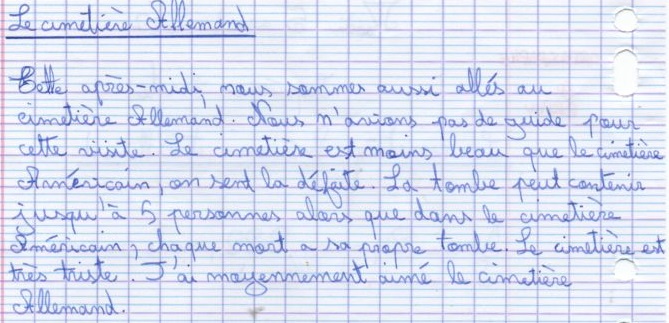 Le cimetière Allemand
Cette après-midi, nous sommes aussi allés au
cimetière Allemand. Nous n'avions pas de guide pour
cette visite. Le cimetière est moins beau que le cimetière
Américain, on sent la défaite. La tombe peut contenir
jusqu'à 5 personnes alors que dans le cimetière
Américain, chaque mort a sa propre tombe. Le cimetière est
très triste. J'ai moyennement aimé le cimetière
Allemand.